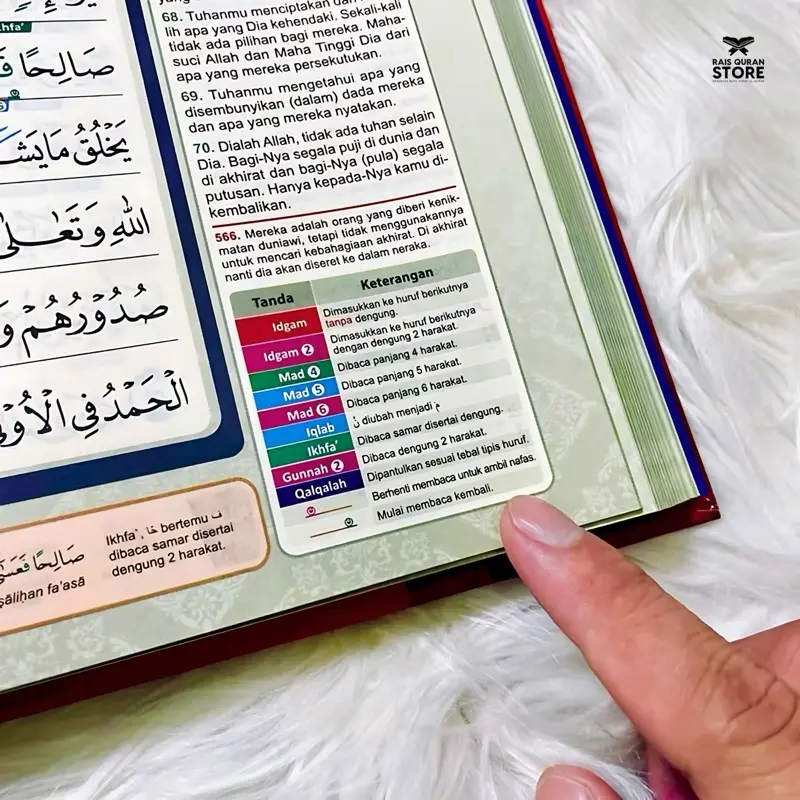 khfa'
صَالِحًا
يَخْلُقُ مَا يَشَ
اللّٰهِ وَتَعٰلٰى
صُدُوْرُهُمْ وَ
الْحَمْدُ فِى الْاُوْلٰى
68. Tuhanmu menciptakan dan
lih apa yang Dia kehendaki. Sekali-kali
tidak ada pilihan bagi mereka. Maha-
suci Allah dan Maha Tinggi Dia dari
apa yang mereka persekutukan.
69. Tuhanmu mengetahui apa yang
disembunyikan (dalam) dada mereka
dan apa yang mereka nyatakan.
70. Dialah Allah, tidak ada tuhan selain
Dia. Bagi-Nya segala puji di dunia dan
di akhirat dan bagi-Nya (pula) segala
putusan. Hanya kepada-Nya kamu di-
kembalikan.
566. Mereka adalah orang yang diberi kenik-
matan duniawi, tetapi tidak menggunakannya
untuk mencari kebahagiaan akhirat. Di akhirat
nanti dia akan diseret ke dalam neraka.
Tanda Keterangan
Idgam Dimasukkan ke huruf berikutnya
tanpa dengung.
Idgam 2 Dimasukkan ke huruf berikutnya
dengan dengung 2 harakat.
Mad 4 Dibaca panjang 4 harakat.
Mad 5 Dibaca panjang 5 harakat.
Mad 6 Dibaca panjang 6 harakat.
Iqlab نْ diubah menjadi مْ
Ikhfa' Dibaca samar disertai dengung.
Gunnah 2 Dibaca dengung 2 harakat.
Qalqalah Dipantulkan sesuai lebal tipis huruf.
Berhenti membaca untuk ambil nafas.
Mulai membaca kembali.
صَالِحًا فَعَسٰٓى
ṣāliḥan fa'asā
Ikhfa', حًا bertemu ف
dibaca samar disertai
dengung 2 harakat.
RAIS QURAN
STORE